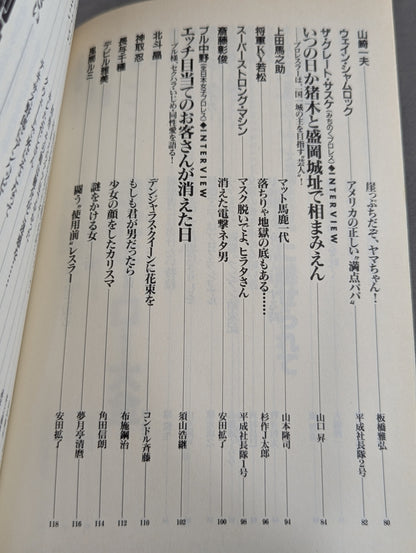 山崎一夫 崖っぷちだぞ、ヤマちゃん! 板橋雅弘 80
ウェイン・シャムロック アメリカの正しい“満点パパ” 平成社長隊2号 82
ザ・グレート・サスケ(みちのくプロレス)◆INTERVIEW
いつの日か猪木と盛岡城址で相まみえん 山口 昇 84
プロレスラーは、一国一城の主を目指す“芸人”!
上田馬之助 マット馬鹿一代 山本隆司 94
将軍KY若松 落ちりゃ地獄の底もある…… 杉作J太郎 96
スーパーストロング・マシン マスク脱いでよ、ヒラタさん 平成社長隊1号 98
斎藤彰俊 消えた電撃ネタ男 安田拡了 100
ブル中野(全日本女子プロレス)◆INTERVIEW
エッチ目当てのお客さんが消えた日 須山浩継 102
ブル様、セクハラ・いじめ・同性愛を語る!
北斗 晶 デンジャラス・クイーンに花束を コンドル斉藤 110
神取 忍 もしも君が男だったら 布施鋼治 112
長与千種 少女の顔をしたカリスマ 角田信朗 114
デビル雅美 謎をかける女 夢月亭清麿 116
闘う“使用前”レスラー 安田拡了 118